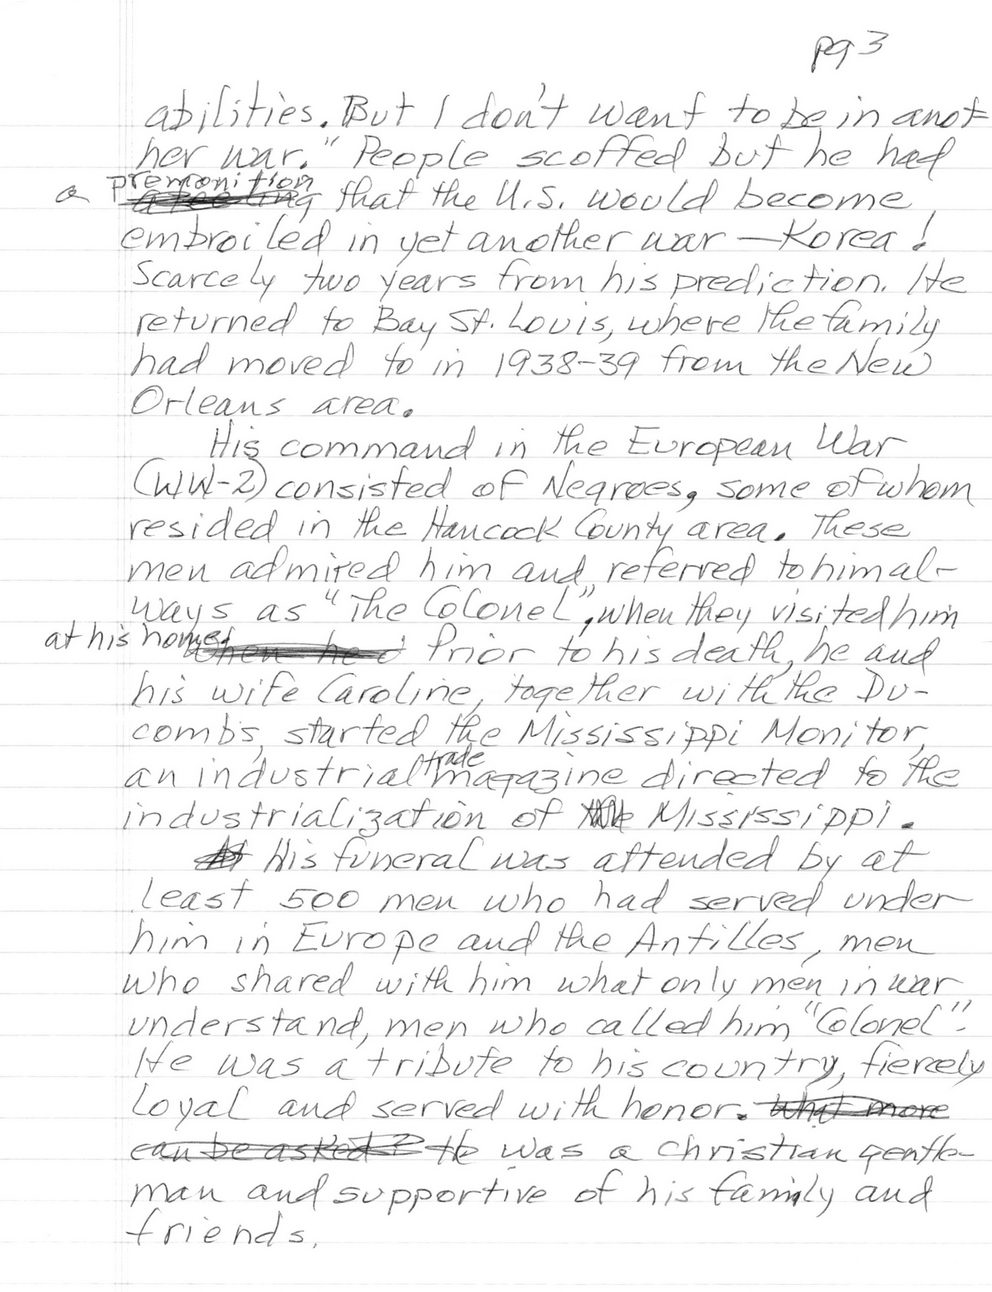 pg 3
abilities. But I don't want to be in anot
her war." People scoffed but he had
a premonition
a feeling that the U.S. would become
embroiled in yet another war — Korea!
Scarcely two years from his prediction. He
returned to Bay St. Louis, where the family
had moved to in 1938-39 from the New
Orleans area.
His command in the European War
(WW-2) consisted of Negroes, some of whom
resided in the Hancock County area. These
men admired him and referred to him al-
ways as "The Colonel", when they visited him
at his home. when he d Prior to his death, he and
his wife Caroline, together with the Du-
combs, started the Mississippi Monitor,
an industrial trade magazine directed to the
industrialization of Mississippi.
His funeral was attended by at
least 500 men who had served under
him in Europe and the Antilles, men
who shared with him what only men in war
understand, men who called him "Colonel".
He was a tribute to his country, fiercely
loyal and served with honor. What more
can be asked? He was a Christian gentle-
man and supportive of his family and
friends.